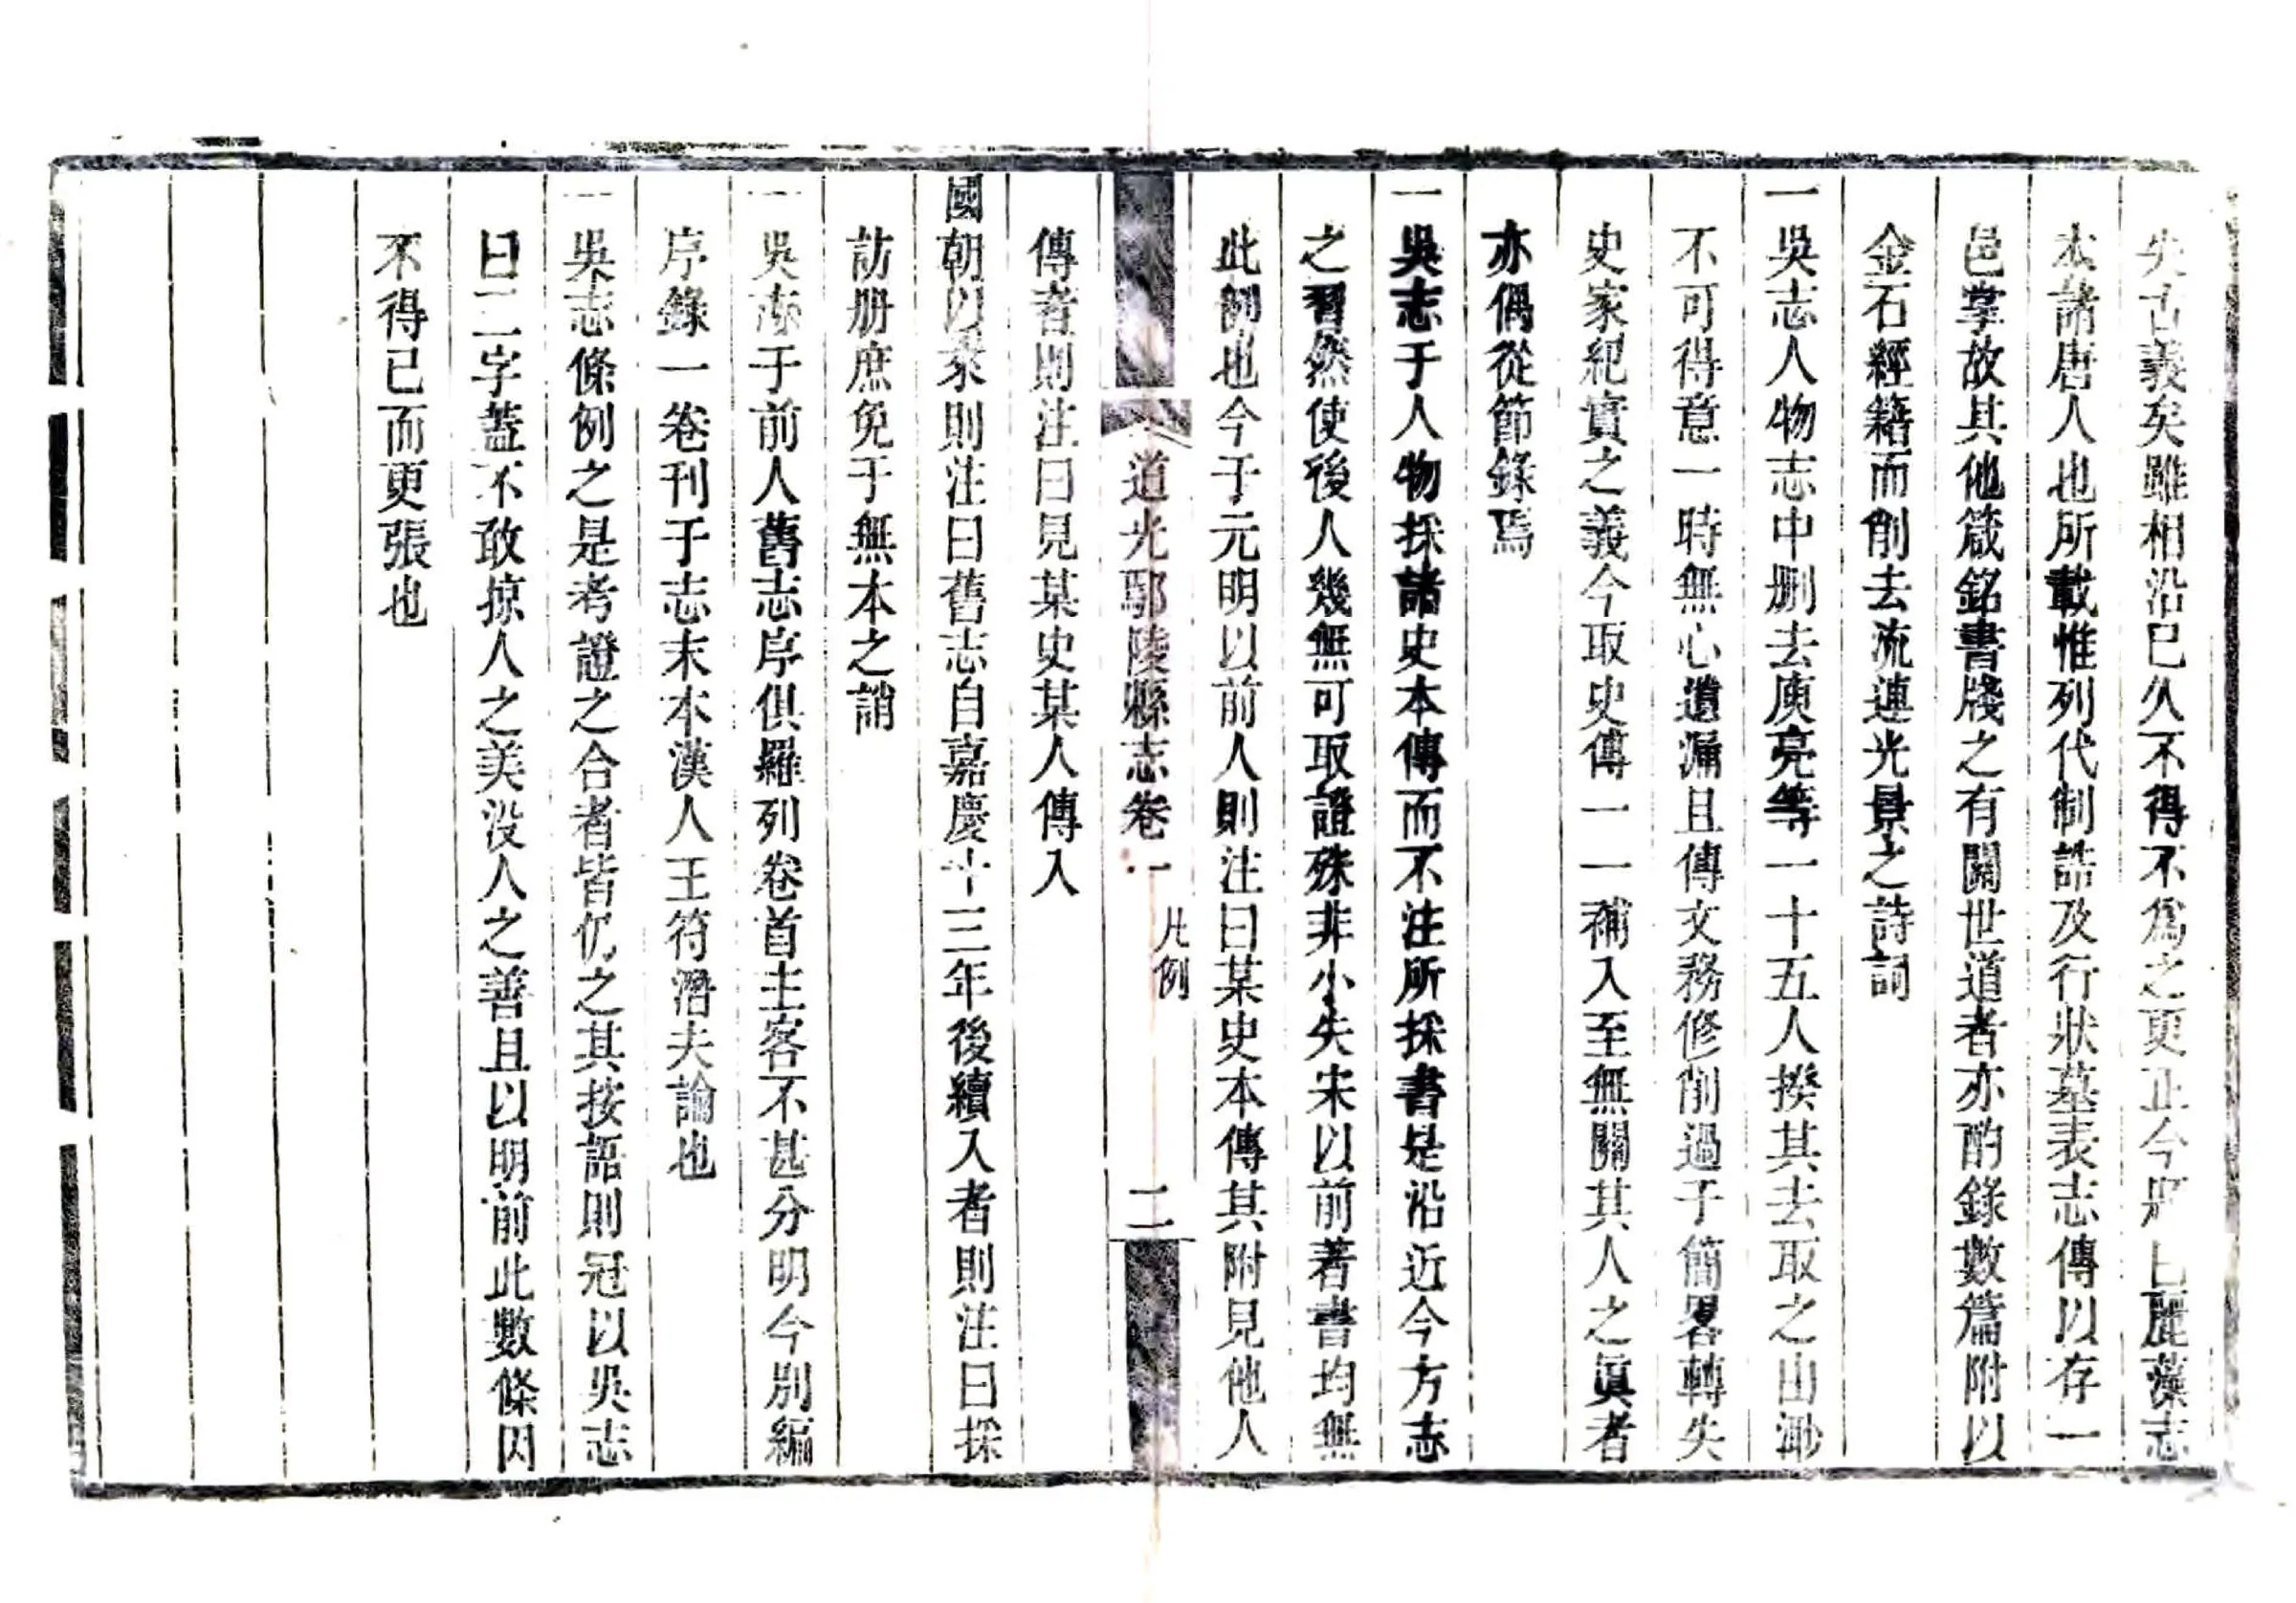 失古義矣雖相沿已久不得不爲之更正今是曰麗藻志
本諸唐人也所載惟列代制誥及行狀墓表志傳以存一
邑掌故其他箴銘書牋之有關世道者亦酌錄數篇附以
金石經籍而削去流連光景之詩詞
一吳志人物志中删去庾亮等一十五人揆其去取之由渺
不可得意一時無心遺漏且傳文務修削過于簡畧轉失
史家紀實之義今取史傳一一補入至無關其人之眞者
亦偶從節錄焉
一吳志于人物採諸史本傳而不注所採書是沿近今方志
之習然使後人幾無可取證殊非小失宋以前著書均無
此例也今于元明以前人則注曰某史本傳其附見他人
道光鄢陵縣志卷一
凡例
二
傳者則注曰見某史某人傳入
國朝以來則注曰舊志自嘉慶十三年後續入者則注曰採
訪册庶免于無本之誚
一吳志于前人舊志序俱羅列卷首主客不甚分明今別編
序錄一卷刊于志末本漢人王符潛夫論也
一吳志條例之是考證之合者皆仍之其按語則冠以吳志
曰二字蓋不敢掠人之美没人之善且以明前此數條因
不得已而更張也